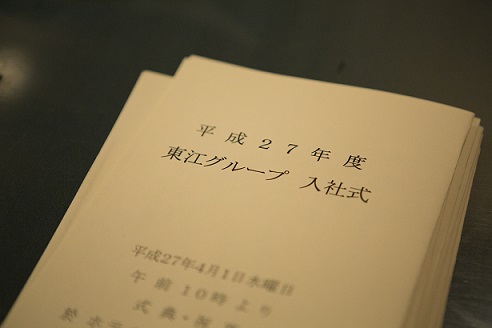 平成27年度
東江グループ 入社式
平成27年4月1日水曜日
午前10時より
式典・祝
於